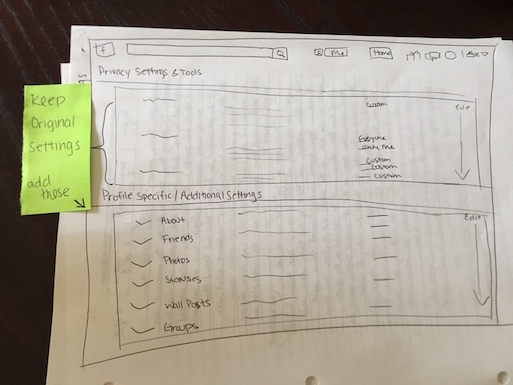 f Me Home
Privacy Settings & Tools
Keep
Original
Settings
add
these
Custom Edit
Everyone
only me
Custom
Custom
Custom
Profile Specific / Additional Settings
Edit
About
Friends
Photos
Statuses
Wall Posts
Groups